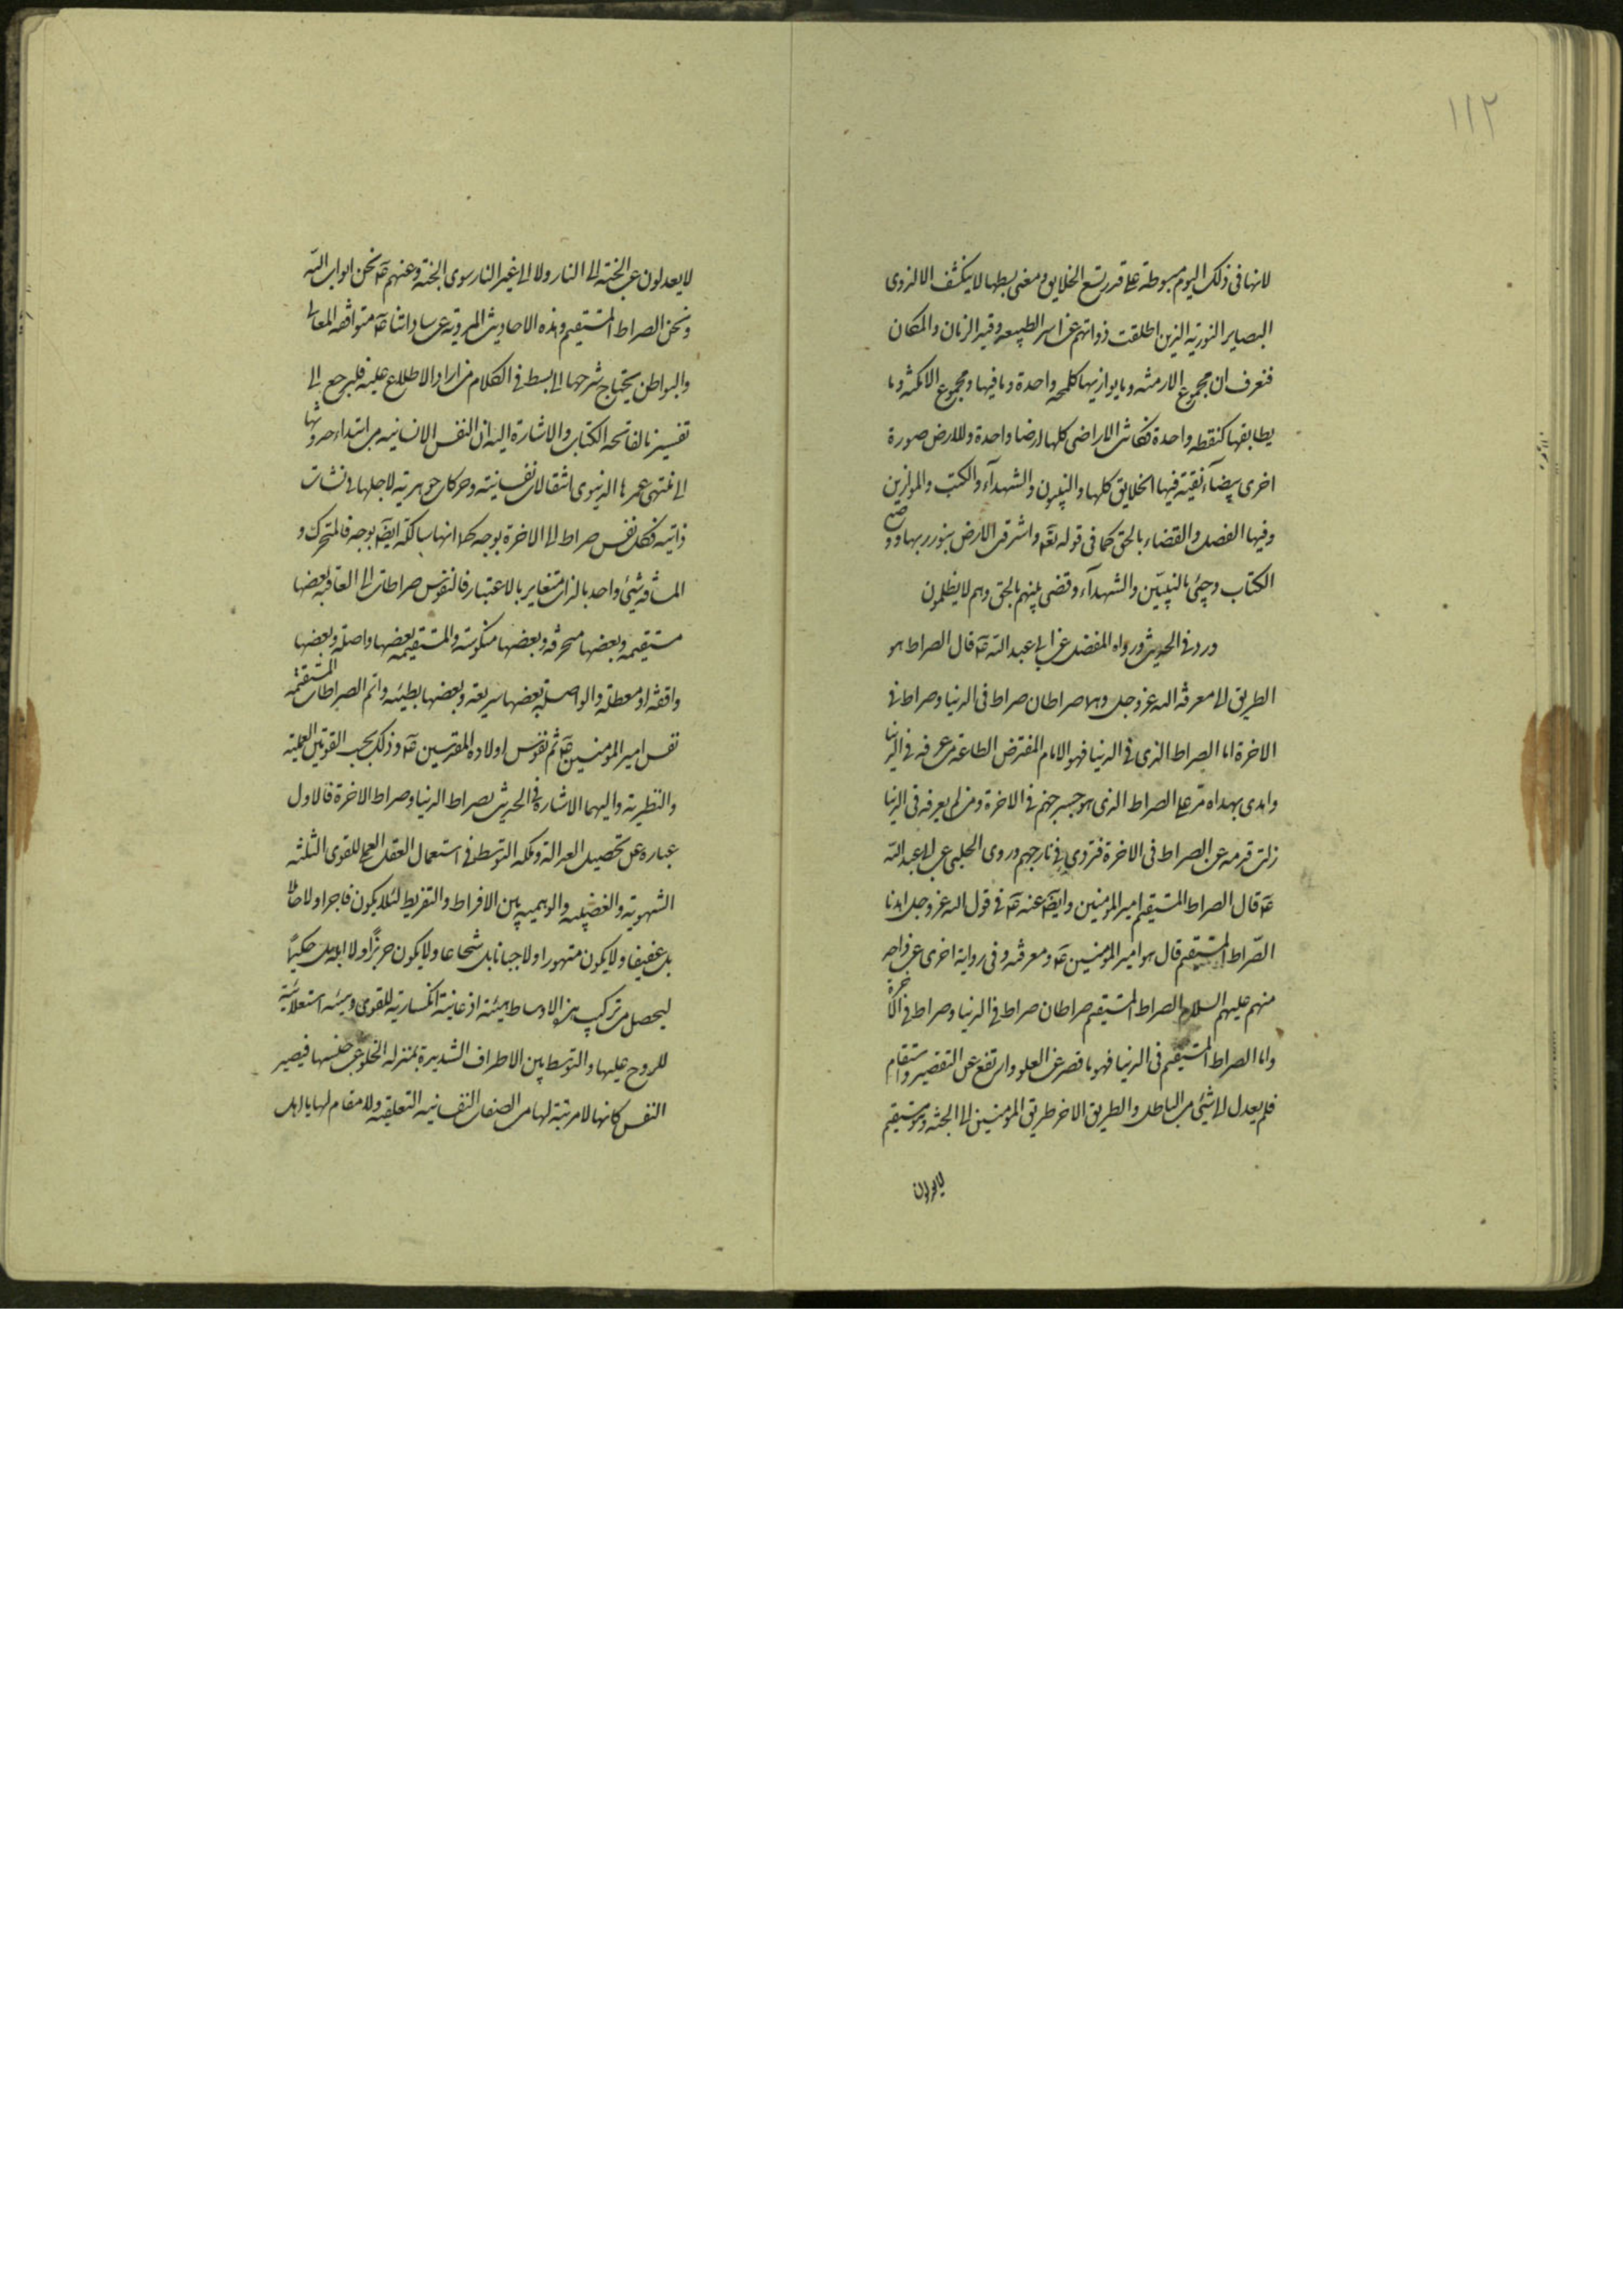 ١١٢
لانها فى ذلك اليوم مبسوطة على قدر تسع الخلايق ومعنى بسطها لا ينكشف الا لذوى
البصاير النورية الذين اطلقت ذواتهم عن اسر الطبيعة وقيد الزمان والمكان
فتعرف ان مجموع الازمنة وما يوازيها كلمحه واحدة وما فيها ومجموع الامكنة وما
يطابقها كنقطه واحدة فكانت الاراضى كلها ارضا واحدة وللارض صورة
اخرى بيضآء نقية فيها الخلايق كلها والنبيون والشهدآء والكتب والموازين
وفيها الفصل والقضاء بالحق كما فى قوله تعه واشرقت الارض بنور ربها ووضع
الكتاب وجيئ بالنبيّين والشهدآء وقضى بينهم بالحق وهم لا يظلمون
ورد فى الحديث ورواه المفضل عن ابى عبد الله عه قال الصراط هو
الطريق الى معرفة الله عز وجل وهما صراطان صراط فى الدنيا وصراط فى
الاخرة اما الصراط الذى فى الدنيا فهو الامام المفترض الطاعة من عرفه فى الدنيا
واهدى بهداه مرّ على الصراط الذى هو جسر جهنم فى الاخرة ومن لم يعرفه فى الدنيا
زلت قدمه عن الصراط فى الاخرة فتردى فى نار جهنم وروى الحلبى عن ابى عبد الله
عه قال الصراط المستقيم امير المؤمنين وايضا عنه عه فى قول الله عز وجل اهدنا
الصّراط المستقيم قال هو امير المؤمنين عه ومعرفته وفى رواية اخرى عن واحد
منهم عليهم السلام الصراط المستقيم صراطان صراط فى الدنيا وصراط فى الاخرة
واما الصراط المستقيم فى الدنيا فهو ما قصر عن العلو وارتفع عن التقصير واستقام
فلم يعدل الى شئ من الباطل والطريق الاخر طريق المؤمنين الى الجنة وهو مستقيم
لا يعدلون
لا يعدلون عن الجنة الى النار ولا الى غير النار سوى الجنة وعنهم عه نحن ابواب الله
ونحن الصراط المستقيم وهذه الاحاديث المروية عن ساداتنا عه متوافقه المعانى
والبواطن يحتاج شرحها الى بسط فى الكلام من اراد الاطلاع عليه فليرجع الى
تفسيرنا لفاتحه الكتاب والاشارة اليه ان النفس الانسانيه من ابتداء حدوثها
الى منتهى عمرها الدنيوى انتقالات نفسانية وحركات جوهرية لاجلها فى نشات
ذاتيه فكل نفس صراط الى الاخرة بوجه كما انها سالكة ايضا بوجه فالمتحرك و
المسافة شئ واحد بالذات متغاير بالاعتبار فالنفوس صراطات الى العاقبه بعضها
مستقيمه وبعضها منحرفه وبعضها منكوسه والمستقيمه بعضها واصلة وبعضها
واقفة او معطلة والواصلة بعضها سريعة وبعضها بطيئه واتم الصراطات المستقيمه
نفس امير المؤمنين عه ثم نفوس اولاده المقدسين عه وذلك بحسب القوتين العملية
والنظرية واليهما الاشارة فى الحديث بصراط الدنيا وصراط الاخرة فالاول
عبارة عن تحصيل العدالة وملكه التوسط فى استعمال العقل العملى للقوى الثلثه
الشهوية والغضبيه والوهميه بين الافراط والتفريط لئلا يكون فاجرا ولا خاملا
بل عفيفا ولا يكون متهورا ولا جبانا بل شجاعا ولا يكون جربزًا ولا ابله بل حكيمًا
ليحصل من تركيب هذه الاوساط هيئة اذعانية انكسارية للقوى وهيئة استعلائية
للروح عليها والتوسط بين الاطراف الشديدة بمنزله الخلو عن جنسها فيصير
النفس كانها لا مرتبة لها من الصفات النفسانيه التعلقيه ولا مقام لها يا اهل